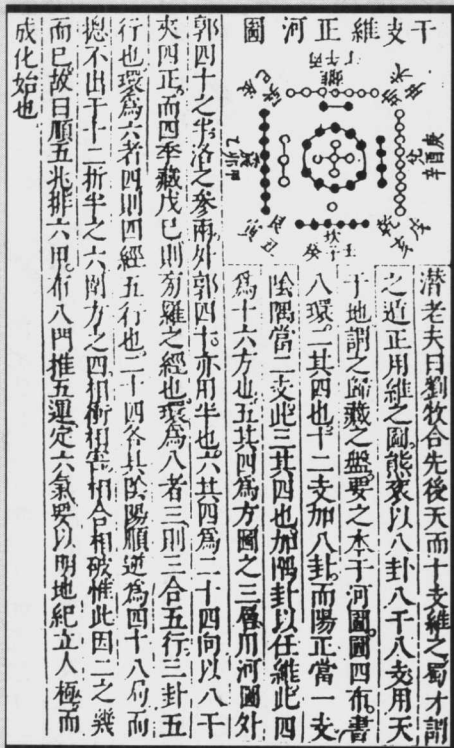 干支維正河圖
丁午丙
離
坤未申
庚
兌
辛酉
乾亥戌
坎
癸子壬
艮丑寅
震
乙卯甲
巽巳辰
潛老夫曰劉牧合先後天而十支維之蜀才謂
之逈正用維之圖熊以八卦八干八支用天
于地謂之歸藏之盤要之本于河圖圖四布書
八環二其四也十二支加八卦而陽正當一支
陰隅當二支此三其四也加隅卦以任維此四
為十六方也五其四為方圖之三層用河圖外
郭四十之半洛之參兩外郭四十亦用半也六其四為二十四向以八干
夾四正而四季藏戊己則方維之經也環為八者三則三合五行三卦五
行也環為六者四則四經五行也二十四各具陰陽順逆為四十八局而
總不出于十二折半之六削方之四相衝相害相合相破惟此因二之幾
而已故曰順五兆排六甲布八門推五運定六氣要以明地紀立人極而
成化始也